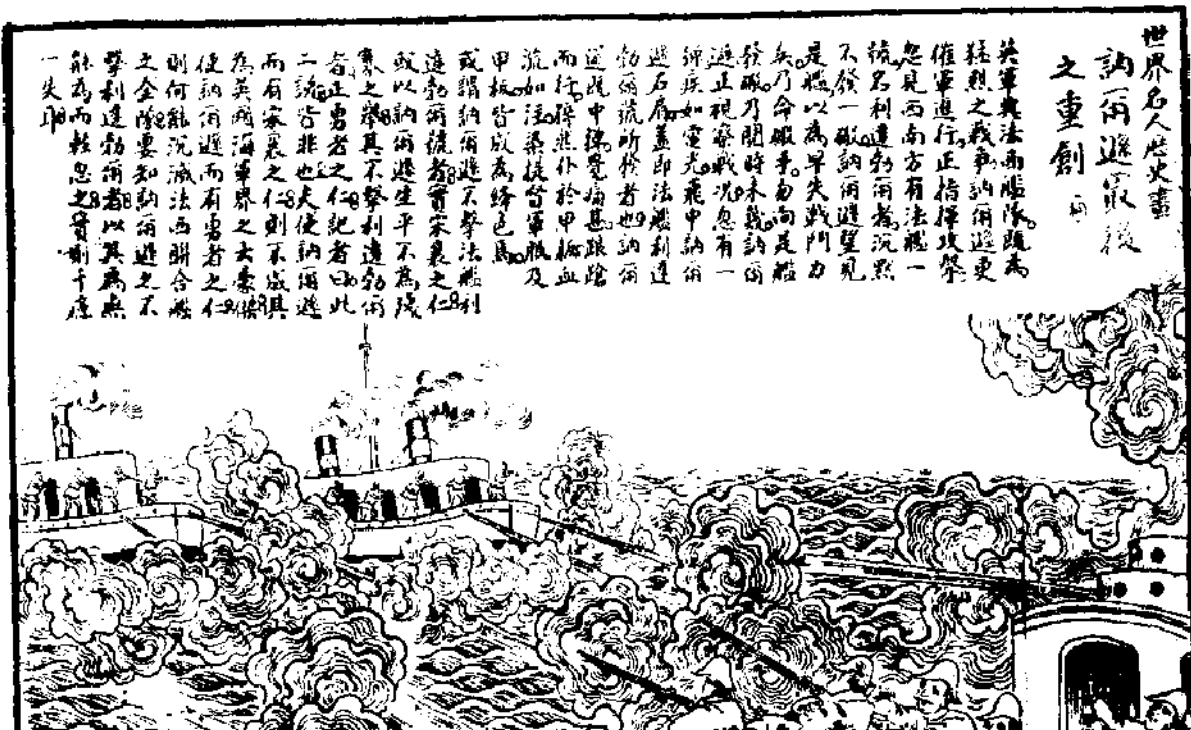 世界名人歷史畫
訥爾遜最後
之重創
英軍與法西艦隊。既為
猛烈之戰爭。訥爾遜更
催軍進行。正指揮攻擊。
忽見西南方有法艦一
號名利達勃爾者。沉默
不發一礮。訥爾遜望見
是艦以為早失戰鬥力
矣。乃命礮手。勿向是艦
發礮。乃閱時未幾。訥爾
遜正視察戰況。忽有一
彈疾如電光。飛中訥爾
遜右肩。蓋即法艦利達
勃爾號所發者也。訥爾
遜既中彈。覺痛甚。踉蹌
而行。將悲仆於甲板。血
流如注。染提督軍服及
甲板。皆成為絳色焉。
或謂訥爾遜不擊法艦利
達勃爾號者。實宋襄之仁。
或以訥爾遜生平不為殘
暴之舉。其不擊利達勃爾
者。正勇者之仁。記者曰。此
二說皆非也。夫使訥爾遜
而有宋襄之仁。則不成其
為英國海軍界之大豪傑。
使訥爾遜而有勇者之仁。
則何能沉滅法西聯合艦
之全隊。要知訥爾遜之不
擊利達勃爾者。以其為無
能為而輕忽之。實則千慮
一失耳。